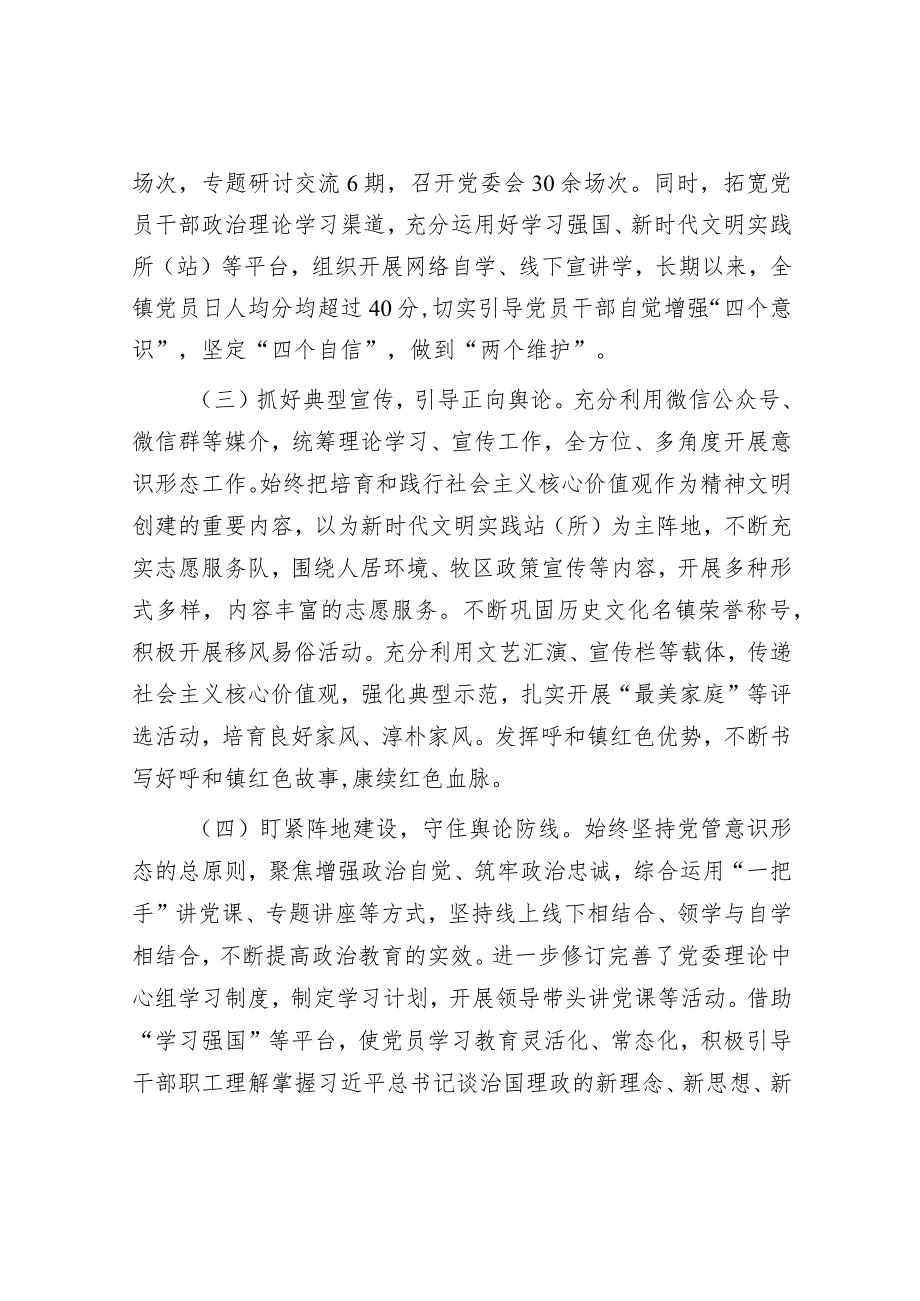 场次，专题研讨交流 6 期，召开党委会 30 余场次。同时，拓宽党
员干部政治理论学习渠道，充分运用好学习强国、新时代文明实践
所（站）等平台，组织开展网络自学、线下宣讲学，长期以来，全
镇党员日人均分均超过 40 分,切实引导党员干部自觉增强“四个意
识”，坚定“四个自信”，做到“两个维护”。
（三）抓好典型宣传，引导正向舆论。充分利用微信公众号、
微信群等媒介，统筹理论学习、宣传工作，全方位、多角度开展意
识形态工作。始终把培育和践行社会主义核心价值观作为精神文明
创建的重要内容，以为新时代文明实践站（所）为主阵地，不断充
实志愿服务队，围绕人居环境、牧区政策宣传等内容，开展多种形
式多样，内容丰富的志愿服务。不断巩固历史文化名镇荣誉称号，
积极开展移风易俗活动。充分利用文艺汇演、宣传栏等载体，传递
社会主义核心价值观，强化典型示范，扎实开展“最美家庭”等评
选活动，培育良好家风、淳朴家风。发挥呼和镇红色优势，不断书
写好呼和镇红色故事,康续红色血脉。
（四）盯紧阵地建设，守住舆论防线。始终坚持党管意识形
态的总原则，聚焦增强政治自觉、筑牢政治忠诚，综合运用“一把
手”讲党课、专题讲座等方式，坚持线上线下相结合、领学与自学
相结合，不断提高政治教育的实效。进一步修订完善了党委理论中
心组学习制度，制定学习计划，开展领导带头讲党课等活动。借助
“学习强国”等平台，使党员学习教育灵活化、常态化，积极引导
干部职工理解掌握习近平总书记谈治国理政的新理念、新思想、新